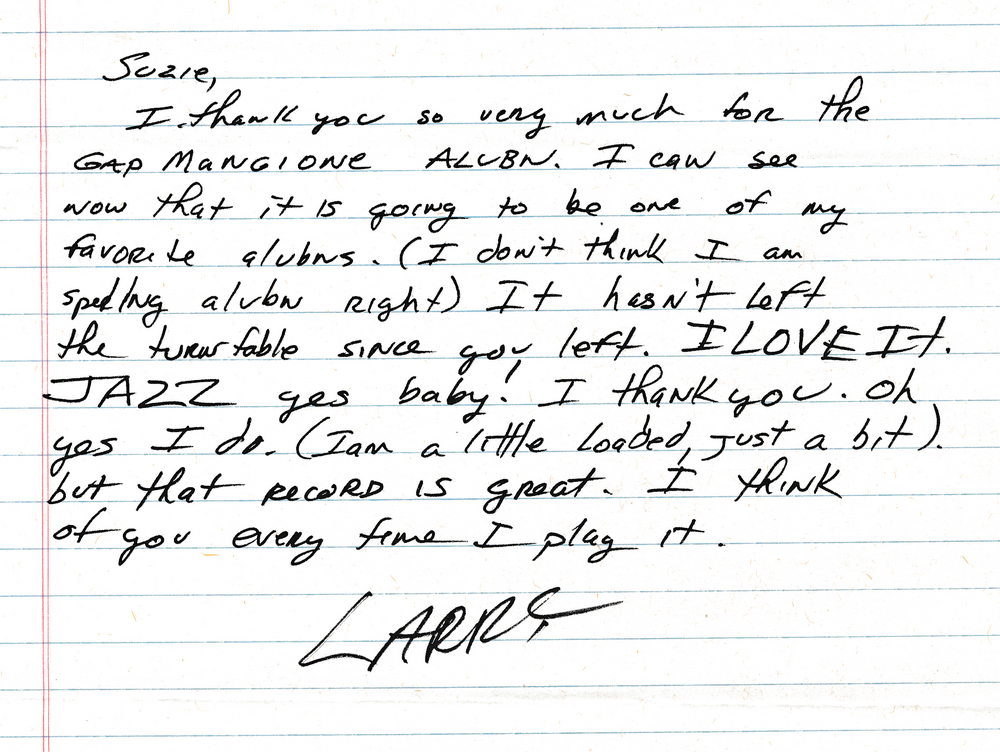 Suzie,
I thank you so very much for the
GAP MANGIONE ALUBN. I can see
now that it is going to be one of my
favorite alubns. (I don't think I am
spelling alubn right) It hasn't left
the turntable since you left. I LOVE It.
JAZZ yes baby! I thank you. Oh
yes I do. (I am a little loaded, just a bit).
but that RECORD IS great. I think
of you every time I play it.
LARRY